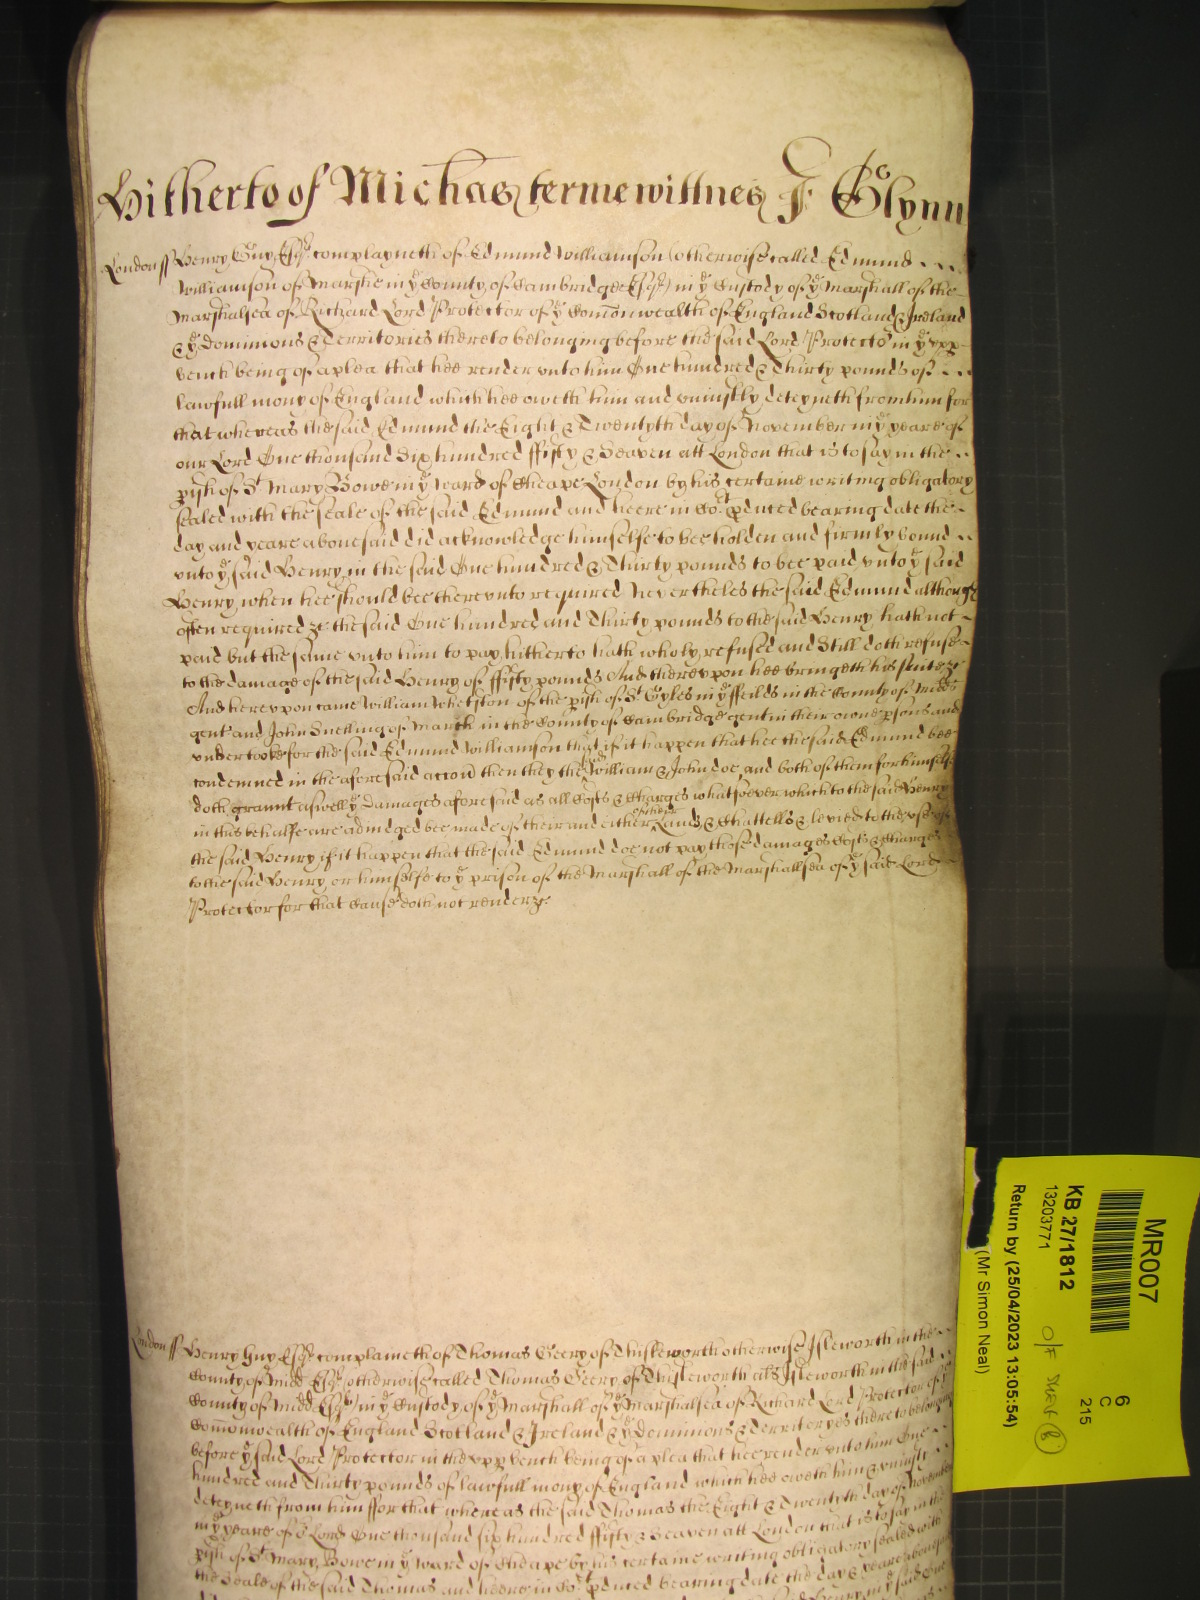 Hitherto of Michas terme wittnes J Glynn
London ss Henry Guy Esqr complayneth of Edmund Williamson (otherwise called Edmund
Williamson of Marske in ye County of Cambridge Esqr) in ye Custody of ye Marshall of the
Marshalsea of Richard Lord Protector of ye Comōn wealth of England Scotland & Ireland
& ye Dominions & Territories thereto belonging before the said Lord Protector in ye upp
bench being of a plea that hee render unto him One hundred & Thirty pounds of
lawfull mony of England which hee oweth him and uniustly deteyneth from him for
that whereas the said Edmund the Eight & Twentyth day of November in ye yeare of
our Lord One thousand Six hundred ffifty & Seaven att London that is to say in the
pish of St Mary Bowe in ye ward of Cheape London by his certaine writing obligatory
sealed with the seale of the said Edmund and heere in Cort pduced bearing date the
day and yeare abovesaid did acknowledge himselfe to bee holden and firmly bound
unto ye said Henry in the said One hundred & Thirty pounds to bee paid unto ye said
Henry when hee should bee thereunto required Nevertheles the said Edmund although
often required &c the said One hundred and Thirty pounds to the said Henry hath not
paid but the same unto him to pay hitherto hath wholy refused and Still doth refuse
to the damage of the said Henry of ffifty pounds And thereupon hee bringeth his suite &c
And hereupon came William Whetston of the pish of St Gyles in ye ffeilds in the County of Midds
gent and John Snelling of March in the County of Cambridge gent in their owne psons and
undertooke for the said Edmund Williamson that if it happen that hee the said Edmund bee
condemned in the aforesaid accon then they the said William & John doe and both of them for himselfe
doth graunt aswell ye Damages aforesaid as all Costs & Charges whatsoever which to the said Henry
in this behalfe are adiudged bee made of their and either of their Lands & Chattells & levied to the use of
the said Henry if it happen that the said Edmund doe not pay those damages Costs & Charges
to the said Henry or himselfe to ye prison of the Marshall of the Marshallsea of ye said Lord
Protector for that Cause doth not render &c
London ss Henry Guy Esqr complaineth of Thomas Geery of Thisleworth otherwise Isleworth in the
County of Midd Esqr (otherwise called Thomas Geery of Thisleworth als Isleworth in the said
County of Midd Esqr) in ye Custody of ye Marshall of ye Marshalsea of Richard Lord Protector of ye
Comōnwealth of England Scotland & Ireland & ye Dominions & territoryes thereto belonging
before ye said Lord Protector in the upp bench being of a plea that hee render unto him One
hundred and Thirty pounds of lawfull mony of England which hee oweth him & uniustly
deteyneth from him ffor that whereas the said Thomas the Eight & Twentyth day of November
in ye yeare of Lord One thousand six hundred ffifty & Seaven att London that is to say in the
pish of St Mary Bowe in ye ward of Cheape by his certaine writing obligatory sealed with
the Seale of the said Thomas and heere in Cort pduced bearing date the day & yeare abovesaid
Henry in ye said One
MR007
6
C
215
KB 27/1812
13203771
O/F SHELF (B)
Return by (25/04/2023 13:05:54)
(Mr Simon Neal)